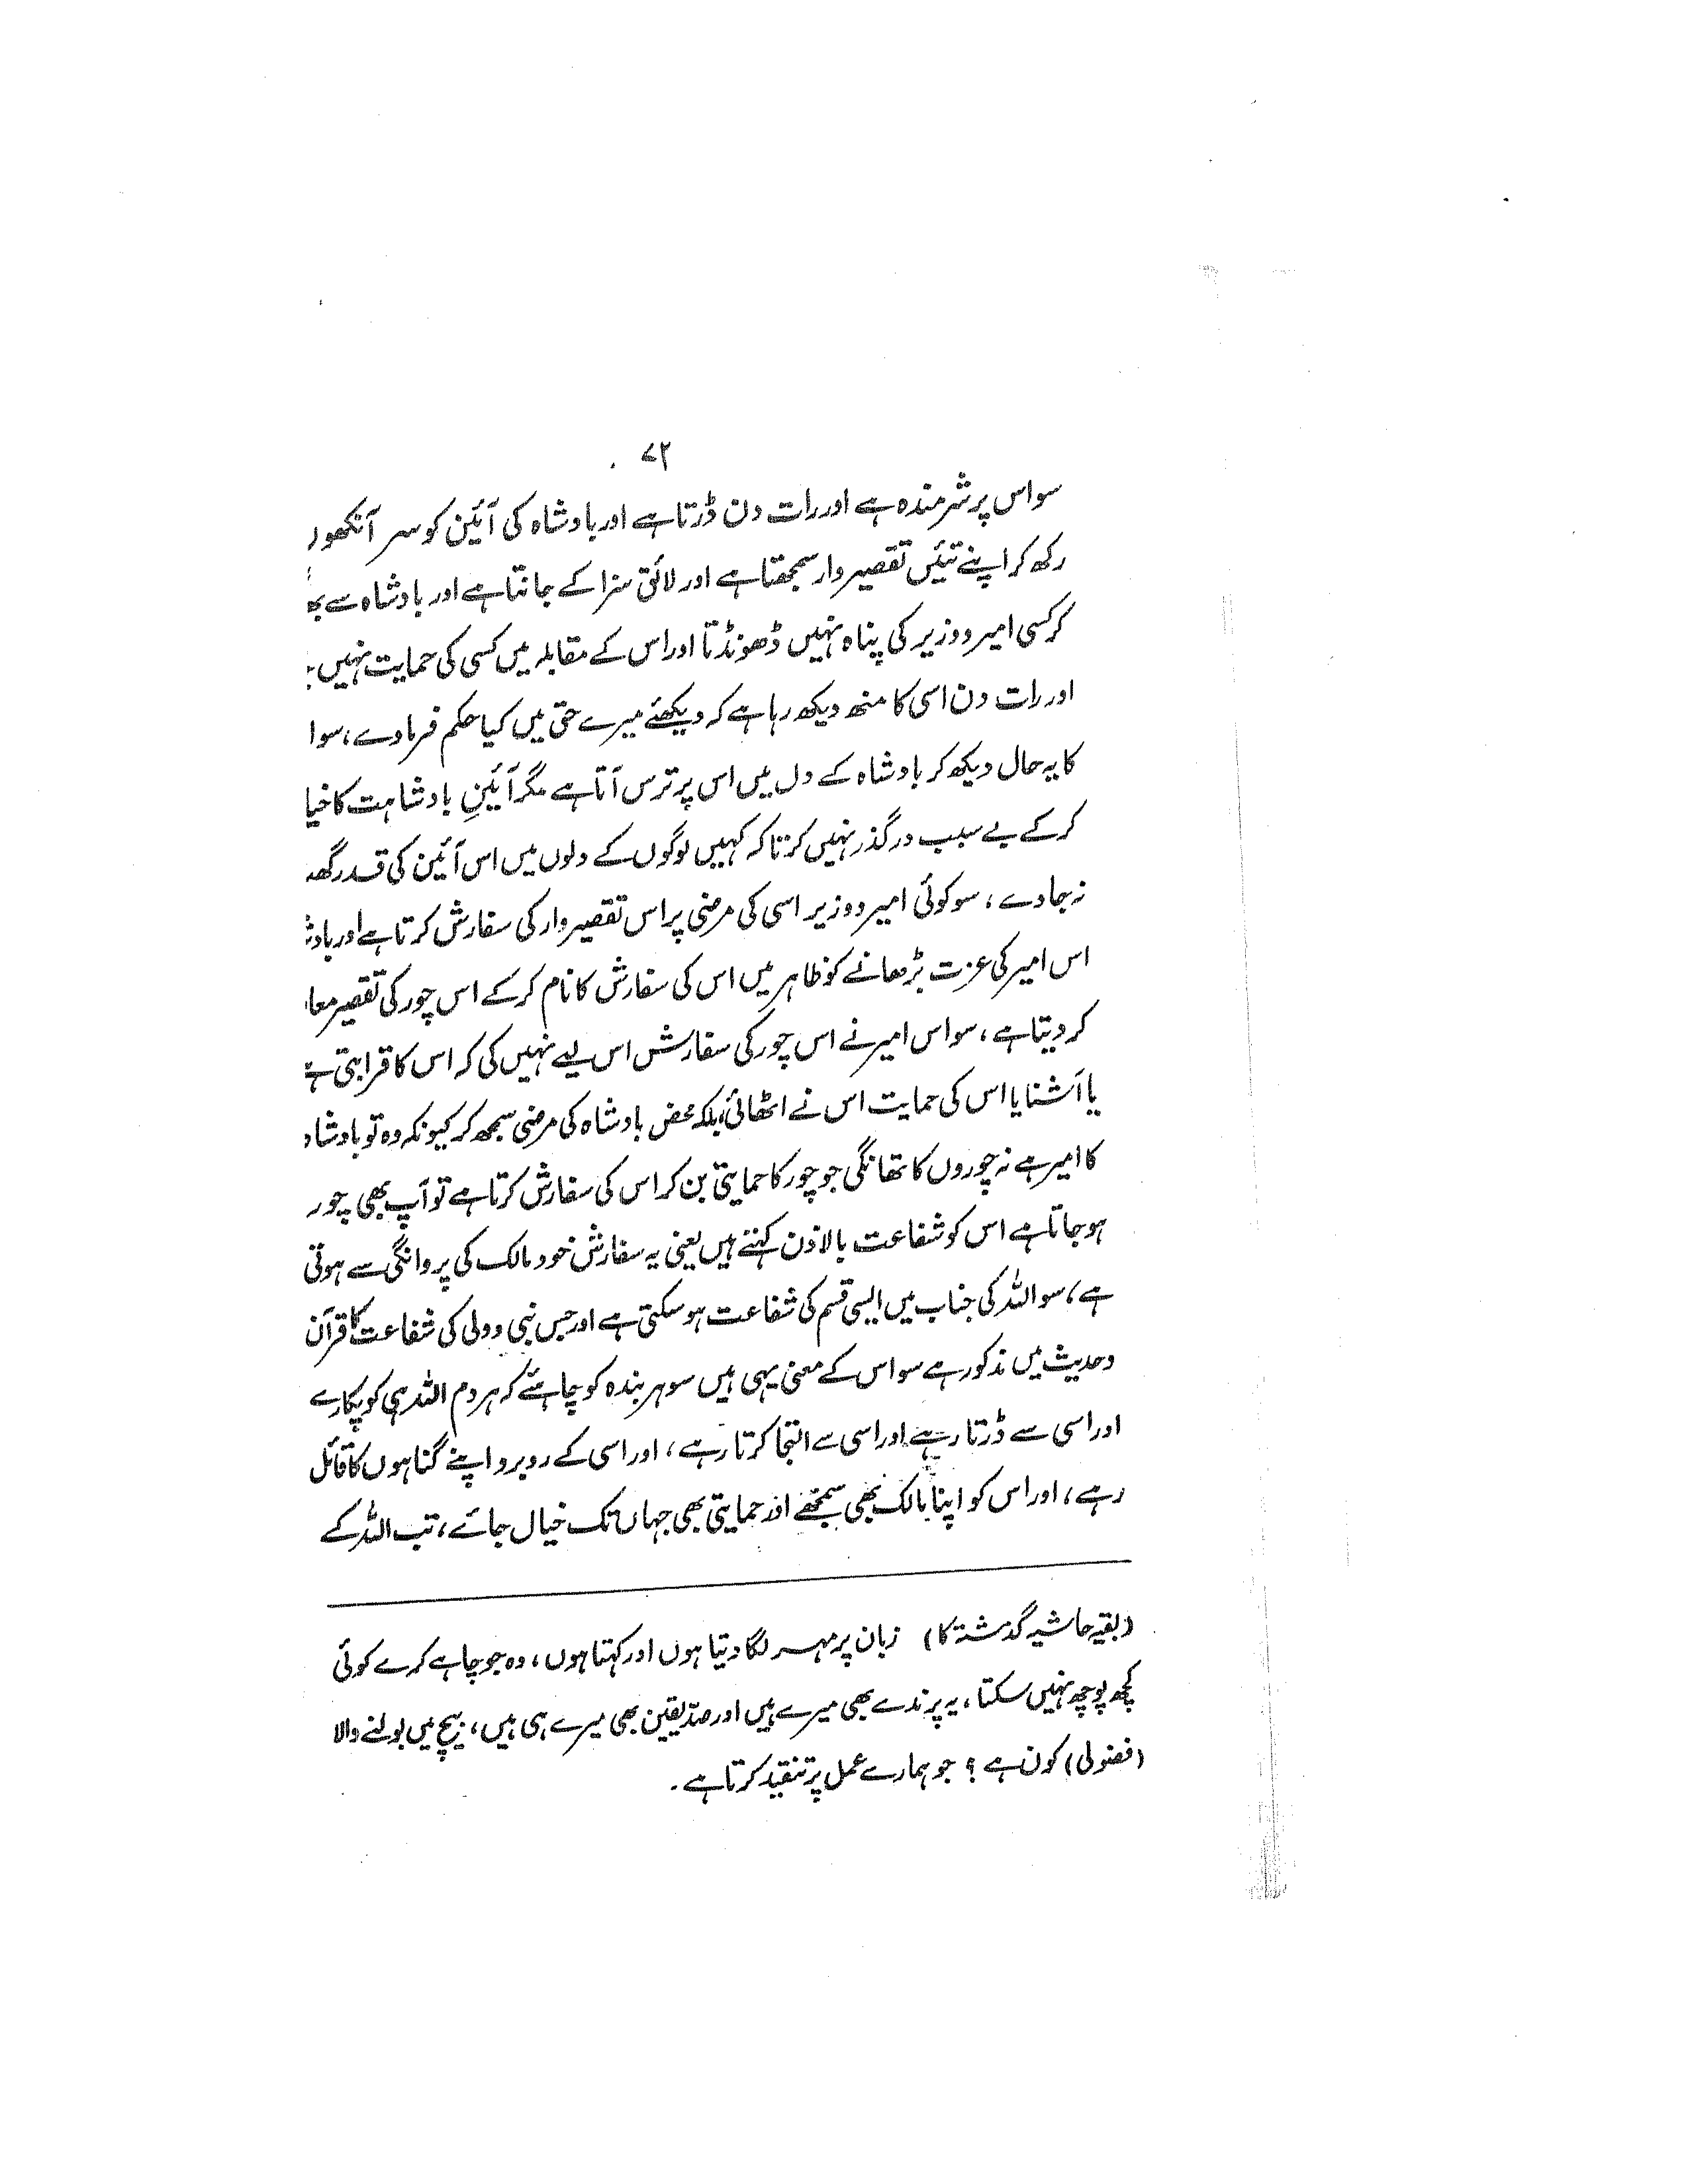 ۷۲
سو اس پر شرمندہ ہے اور رات دن ڈرتا ہے اور بادشاہ کی آئین کو سر آنکھو
رکھ کر اپنے تئیں تقصیر وار سمجھتا ہے اور لائق سزا کے جانتا ہے اور بادشاہ سے
کر کسی امیر و وزیر کی پناہ نہیں ڈھونڈتا اور اس کے مقابلہ میں کسی کی حمایت نہیں
اور رات دن اسی کا منھ دیکھ رہا ہے کہ دیکھئے میرے حق میں کیا حکم فرمادے، سو ا
کا یہ حال دیکھ کر بادشاہ کے دل میں اس پر ترس آتا ہے مگر آئینِ بادشاہت کا خیا
کر کے بے سبب درگذر نہیں کرتا کہ کہیں لوگوں کے دلوں میں اس آئین کی قدر گھٹ
نہ جاوے، سو کوئی امیر و وزیر اسی کی مرضی پر اس تقصیر وار کی سفارش کرتا ہے اور بادش
اس امیر کی عزت بڑھانے کو ظاہر میں اس کی سفارش کا نام کر کے اس چور کی تقصیر معا
کر دیتا ہے، سو اس امیر نے اس چور کی سفارش اس لیے نہیں کی کہ اس کا قرابتی ہے
یا آشنا یا اس کی حمایت اس نے اٹھائی، بلکہ محض بادشاہ کی مرضی سمجھ کر کیونکہ وہ تو بادشاہ
کا امیر ہے نہ چوروں کا تھانگی جو چور کا حمایتی بن کر اس کی سفارش کرتا ہے تو آپ بھی چور
ہو جاتا ہے اس کو شفاعت بالاذن کہتے ہیں یعنی یہ سفارش خود مالک کی پروانگی سے ہوتی
ہے، سو اللہ کی جناب میں ایسی قسم کی شفاعت ہو سکتی ہے اور جس نبی و ولی کی شفاعت کا قرآن
و حدیث میں مذکور ہے سو اس کے معنی یہی ہیں سو ہر بندہ کو چاہئے کہ ہر دم اللہ ہی کو پکارے
اور اسی سے ڈرتا رہے اور اسی سے التجا کرتا رہے، اور اسی کے روبرو اپنے گناہوں کا قائل
رہے، اور اس کو اپنا مالک بھی سمجھے اور حمایتی بھی جہاں تک خیال جائے، تب اللہ کے
(بقیہ حاشیہ گذشتہ کا) زبان پر مہر لگا دیتا ہوں اور کہتا ہوں، وہ جو چاہے کرے کوئی
کچھ پوچھ نہیں سکتا، یہ پرندے بھی میرے ہیں اور صدّیقین بھی میرے ہی ہیں، بیچ میں بولنے والا
(فضولی) کون ہے؟ جو ہمارے عمل پر تنقید کرتا ہے۔